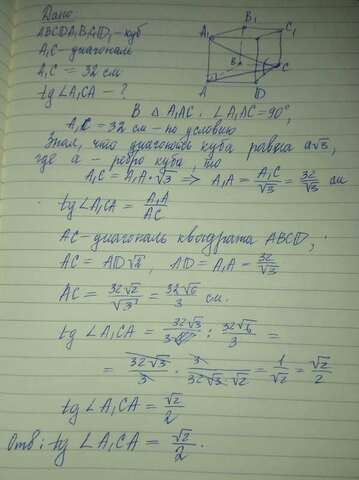 Дано:
ABCDA₁B₁C₁D₁ - куб
A₁C - диагональ
A₁C = 32 см
tg∠A₁CA - ?
B₁
A₁
C₁
B
C
A
D
В △ A₁AC, ∠A₁AC = 90°,
A₁C = 32 см - по условию
Зная, что диагональ куба равна a√3,
где a - ребро куба, то
A₁C = A₁A · √3 ⇒ A₁A = A₁C/√3 = 32/√3 см
tg∠A₁CA = A₁A/AC
AC - диагональ квадрата ABCD,
AC = AD√2, AD = A₁A - 32/√3
AC = 32√2/√3 = 32√6/3 см.
tg∠A₁CA = 32√3/3 : 32√6/3 =
= 32√3/3 · 3/32√3·√2 = 1/√2 = √2/2
tg∠A₁CA = √2/2
Отв: tg∠A₁CA = √2/2.